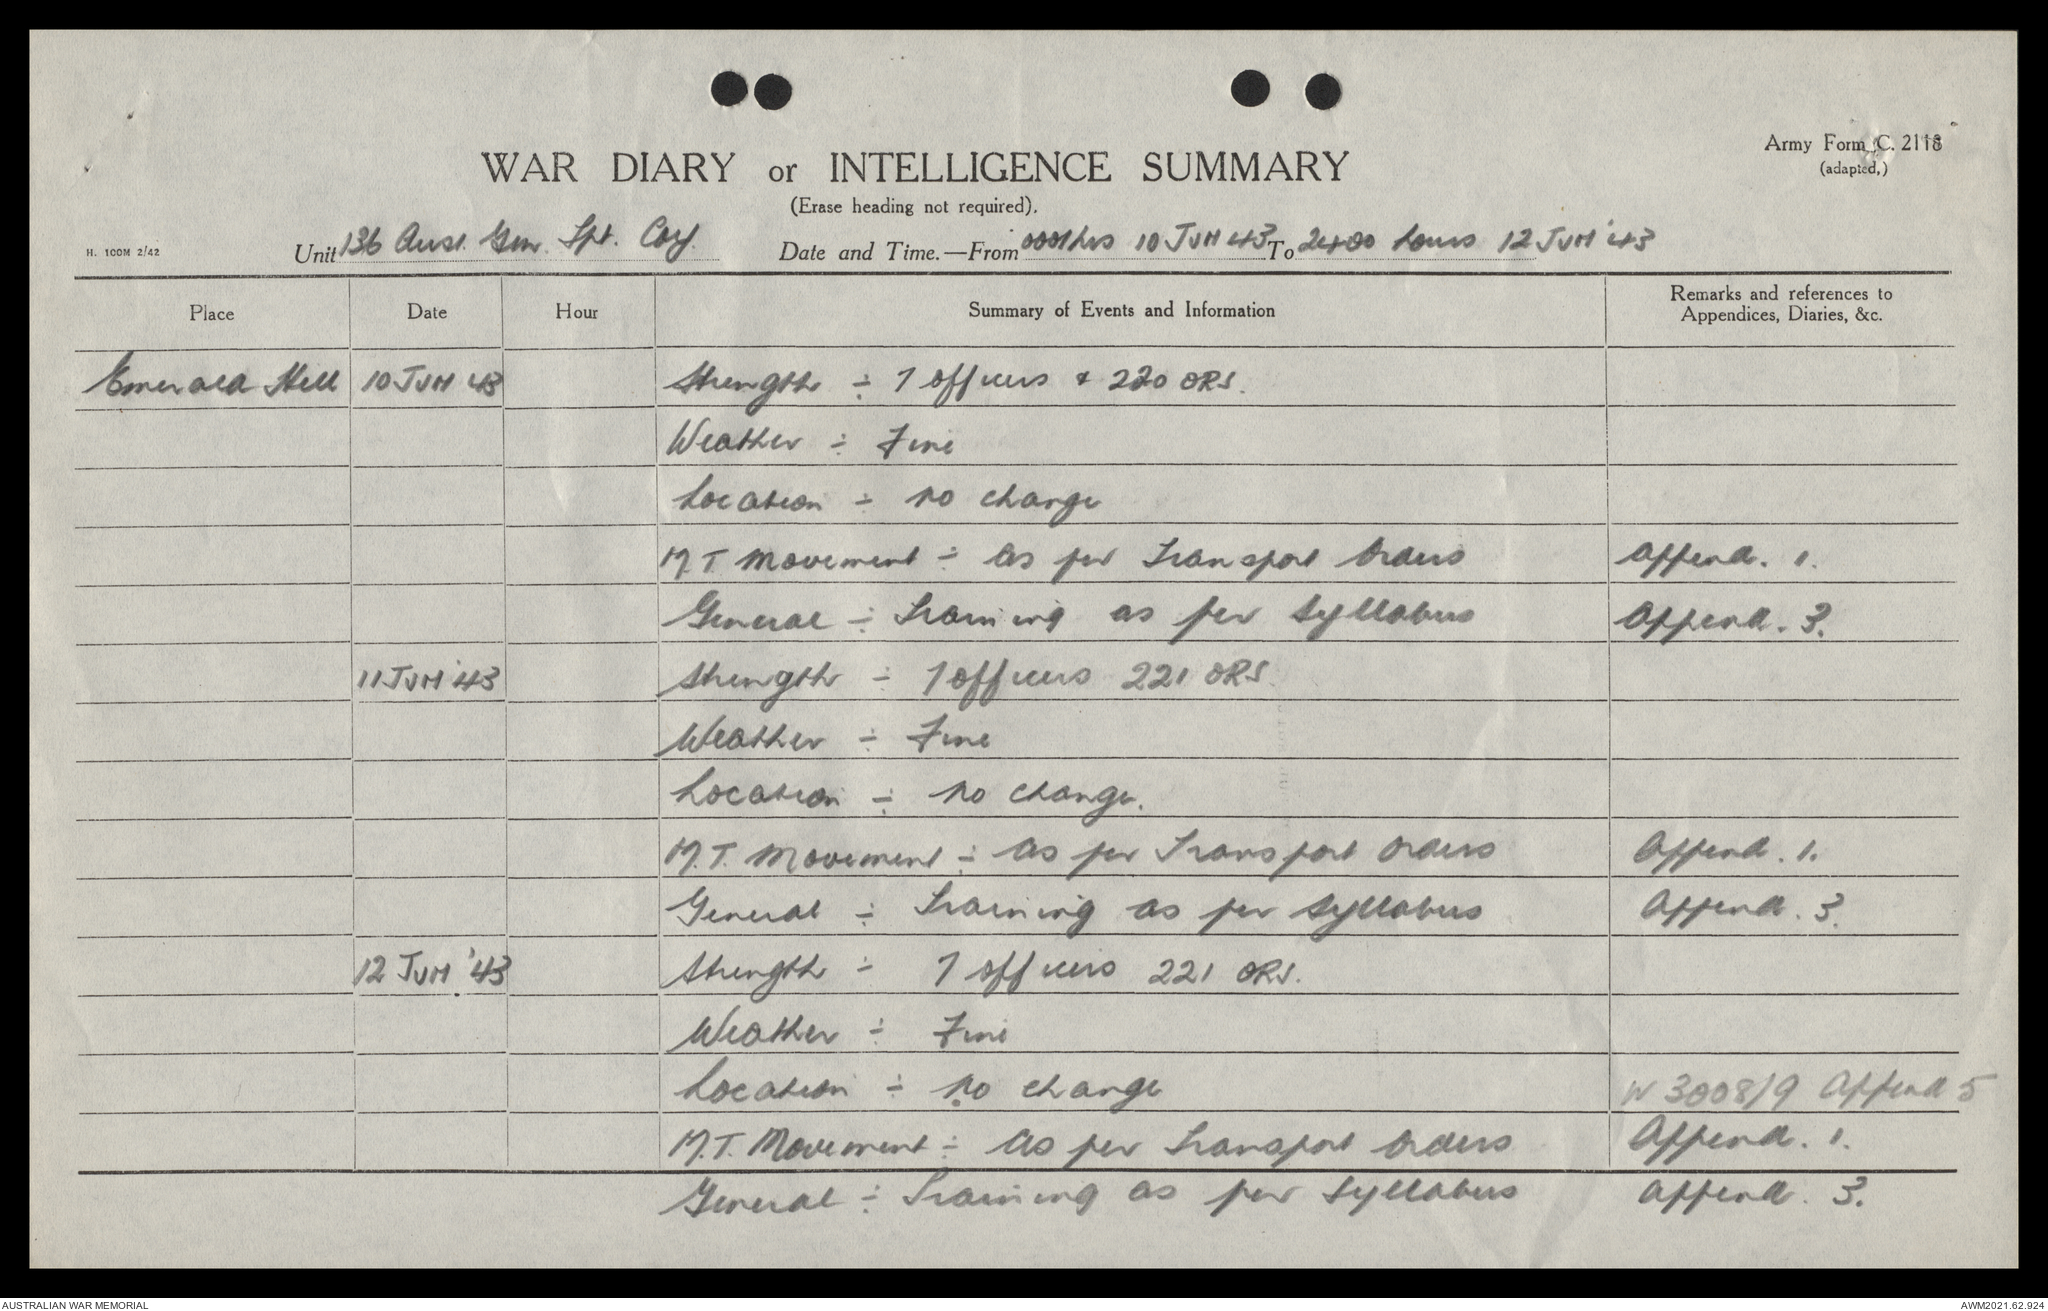 Army Form C. 2118
(adapted,)
WAR DIARY or INTELLIGENCE SUMMARY
(Erase heading not required).
H. 100M 2/42
Unit 136 Aust. Gen. Tpt. Coy. Date and Time.—From 0001hrs 10 JUN 43 To 2400 hours 12 JUN '43
Place Date Hour Summary of Events and Information Remarks and references to Appendices, Diaries, &c.
Emerald Hill 10 JUN '43 Strength ÷ 7 officers + 220 ORS.
Weather ÷ Fine
Location ÷ no change
M.T. Movement ÷ as per Transport Orders Append. 1.
General ÷ Training as per Syllabus Append. 3.
11 JUN '43 Strength ÷ 7 officers 221 ORS.
Weather ÷ Fine
Location ÷ no change.
M.T. Movement ÷ as per Transport Orders Append. 1.
General ÷ Training as per Syllabus Append. 3.
12 JUN '43 Strength ÷ 7 officers 221 ORS.
Weather ÷ Fine
Location ÷ no change W 3008/9 Append 5
M.T. Movement ÷ as per Transport Orders Append. 1.
General ÷ Training as per Syllabus Append. 3.
AUSTRALIAN WAR MEMORIAL AWM2021.62.924